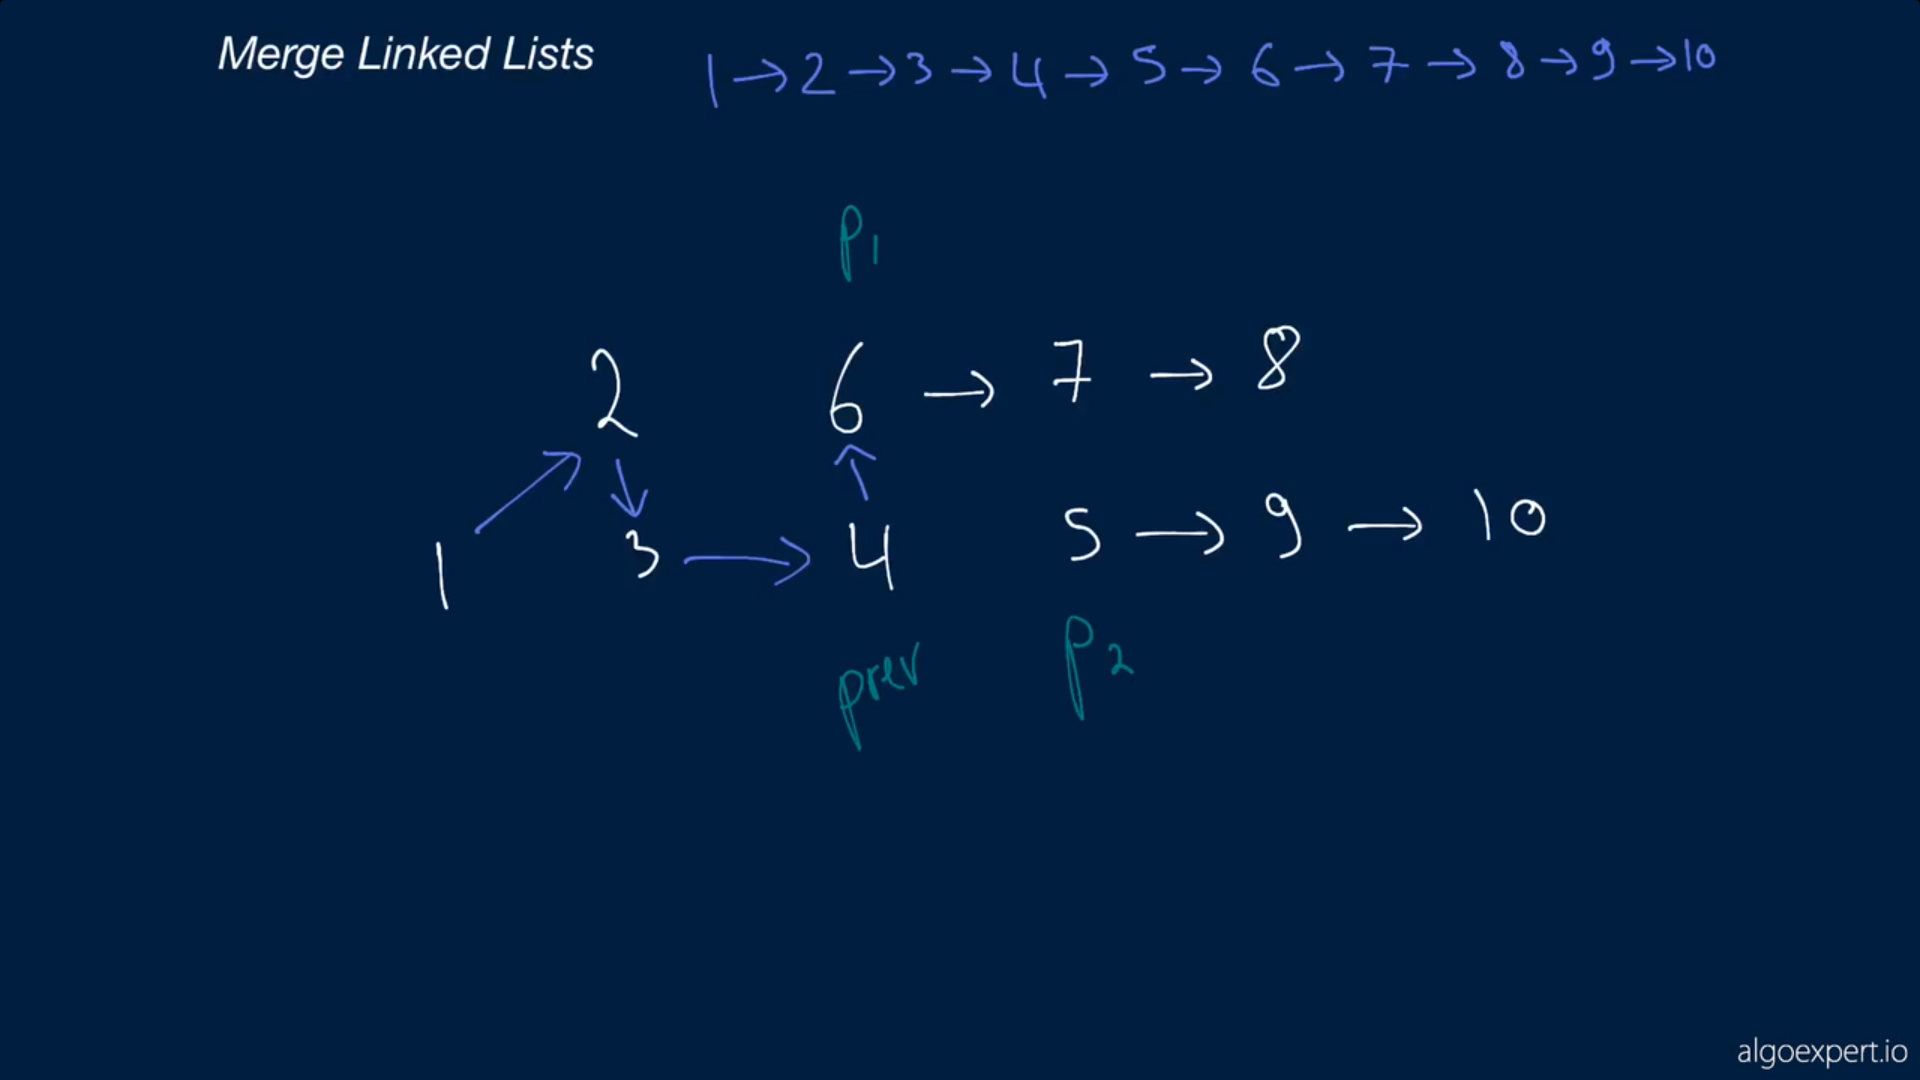 Merge Linked Lists
1 → 2 → 3 → 4 → 5 → 6 → 7 → 8 → 9 → 10
P1
2 6 → 7 → 8
1 3 → 4 5 → 9 → 10
prev P2
algoexpert.io